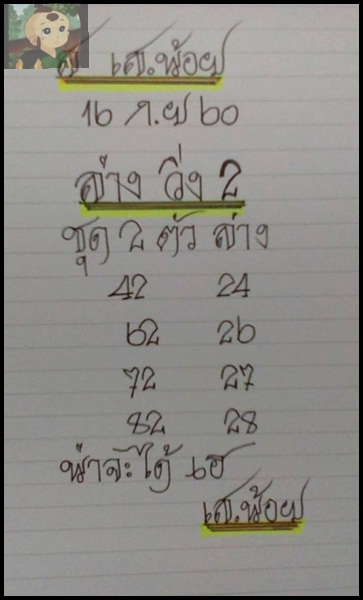 ส เส.พ้อย
16 ก.ย 60
ล่าง วิ่ง 2
ชุด 2 ตัว ล่าง
42 24
62 26
72 27
82 28
น่าจะได้ เฮ
เส.พ้อย